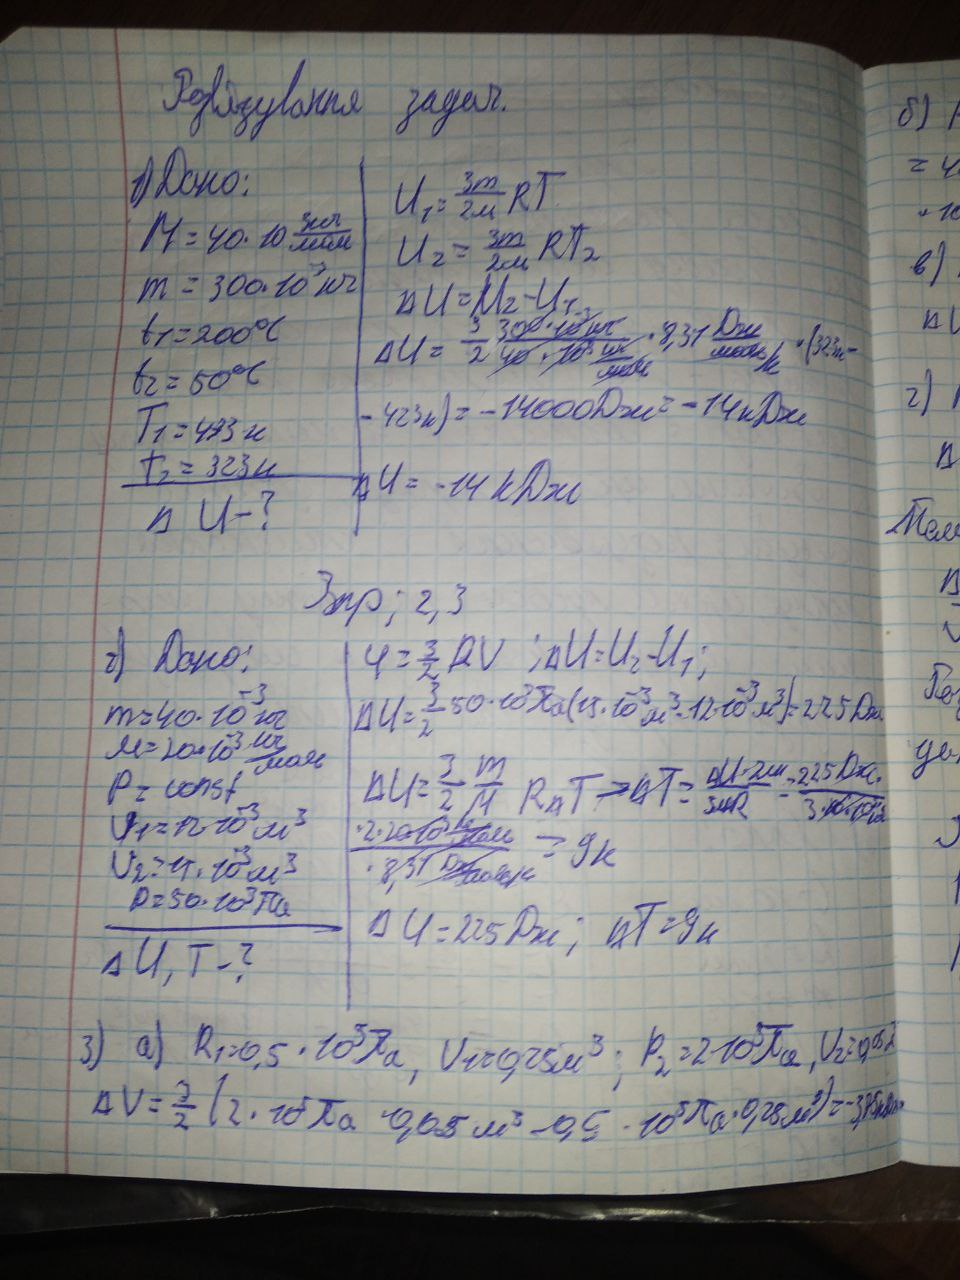 Розв'язування задач.
1) Дано:
M = 40 · 10⁻³ кг/моль
m = 300 · 10⁻³ кг
t₁ = 200°C
t₂ = 50°C
T₁ = 473 к
t₂ = 323 к
Δ U - ?
U₁ = 3m/2M RT
U₂ = 3m/2M RT₂
ΔU = U₂ - U₁
ΔU = 3/2 300 · 10⁻³ кг / 40 · 10⁻³ кг/моль · 8,31 Дж/моль к · (323 к -
- 423 к) = -14000 Дж = -14 кДж
ΔU = -14 кДж
Впр; 2, 3
2) Дано:
m = 40 · 10⁻³ кг
M = 20 · 10⁻³ кг/моль
P = const
V₁ = 12 · 10⁻³ м³
V₂ = 15 · 10⁻³ м³
P = 50 · 10³ Па
ΔU, T - ?
U = 3/2 PV ; ΔU = U₂ - U₁;
ΔU = 3/2 50 · 10³ Па (15 · 10⁻³ м³ - 12 · 10⁻³ м³) = 225 Дж
ΔU = 3/2 m/M RΔT → ΔT = ΔU · 2M / 3mR = 225 Дж ·
= 9 к
ΔU = 225 Дж; ΔT = 9 к
3) а) P₁ = 0,5 · 10⁵ Па, V₁ = 0,25 м³; P₂ = 2 · 10⁵ Па, V₂ = 0,05
ΔV = 3/2 (2 · 10⁵ Па · 0,05 м³ - 0,5 · 10⁵ Па · 0,25 м³) = -3,75
б)
в)
г)